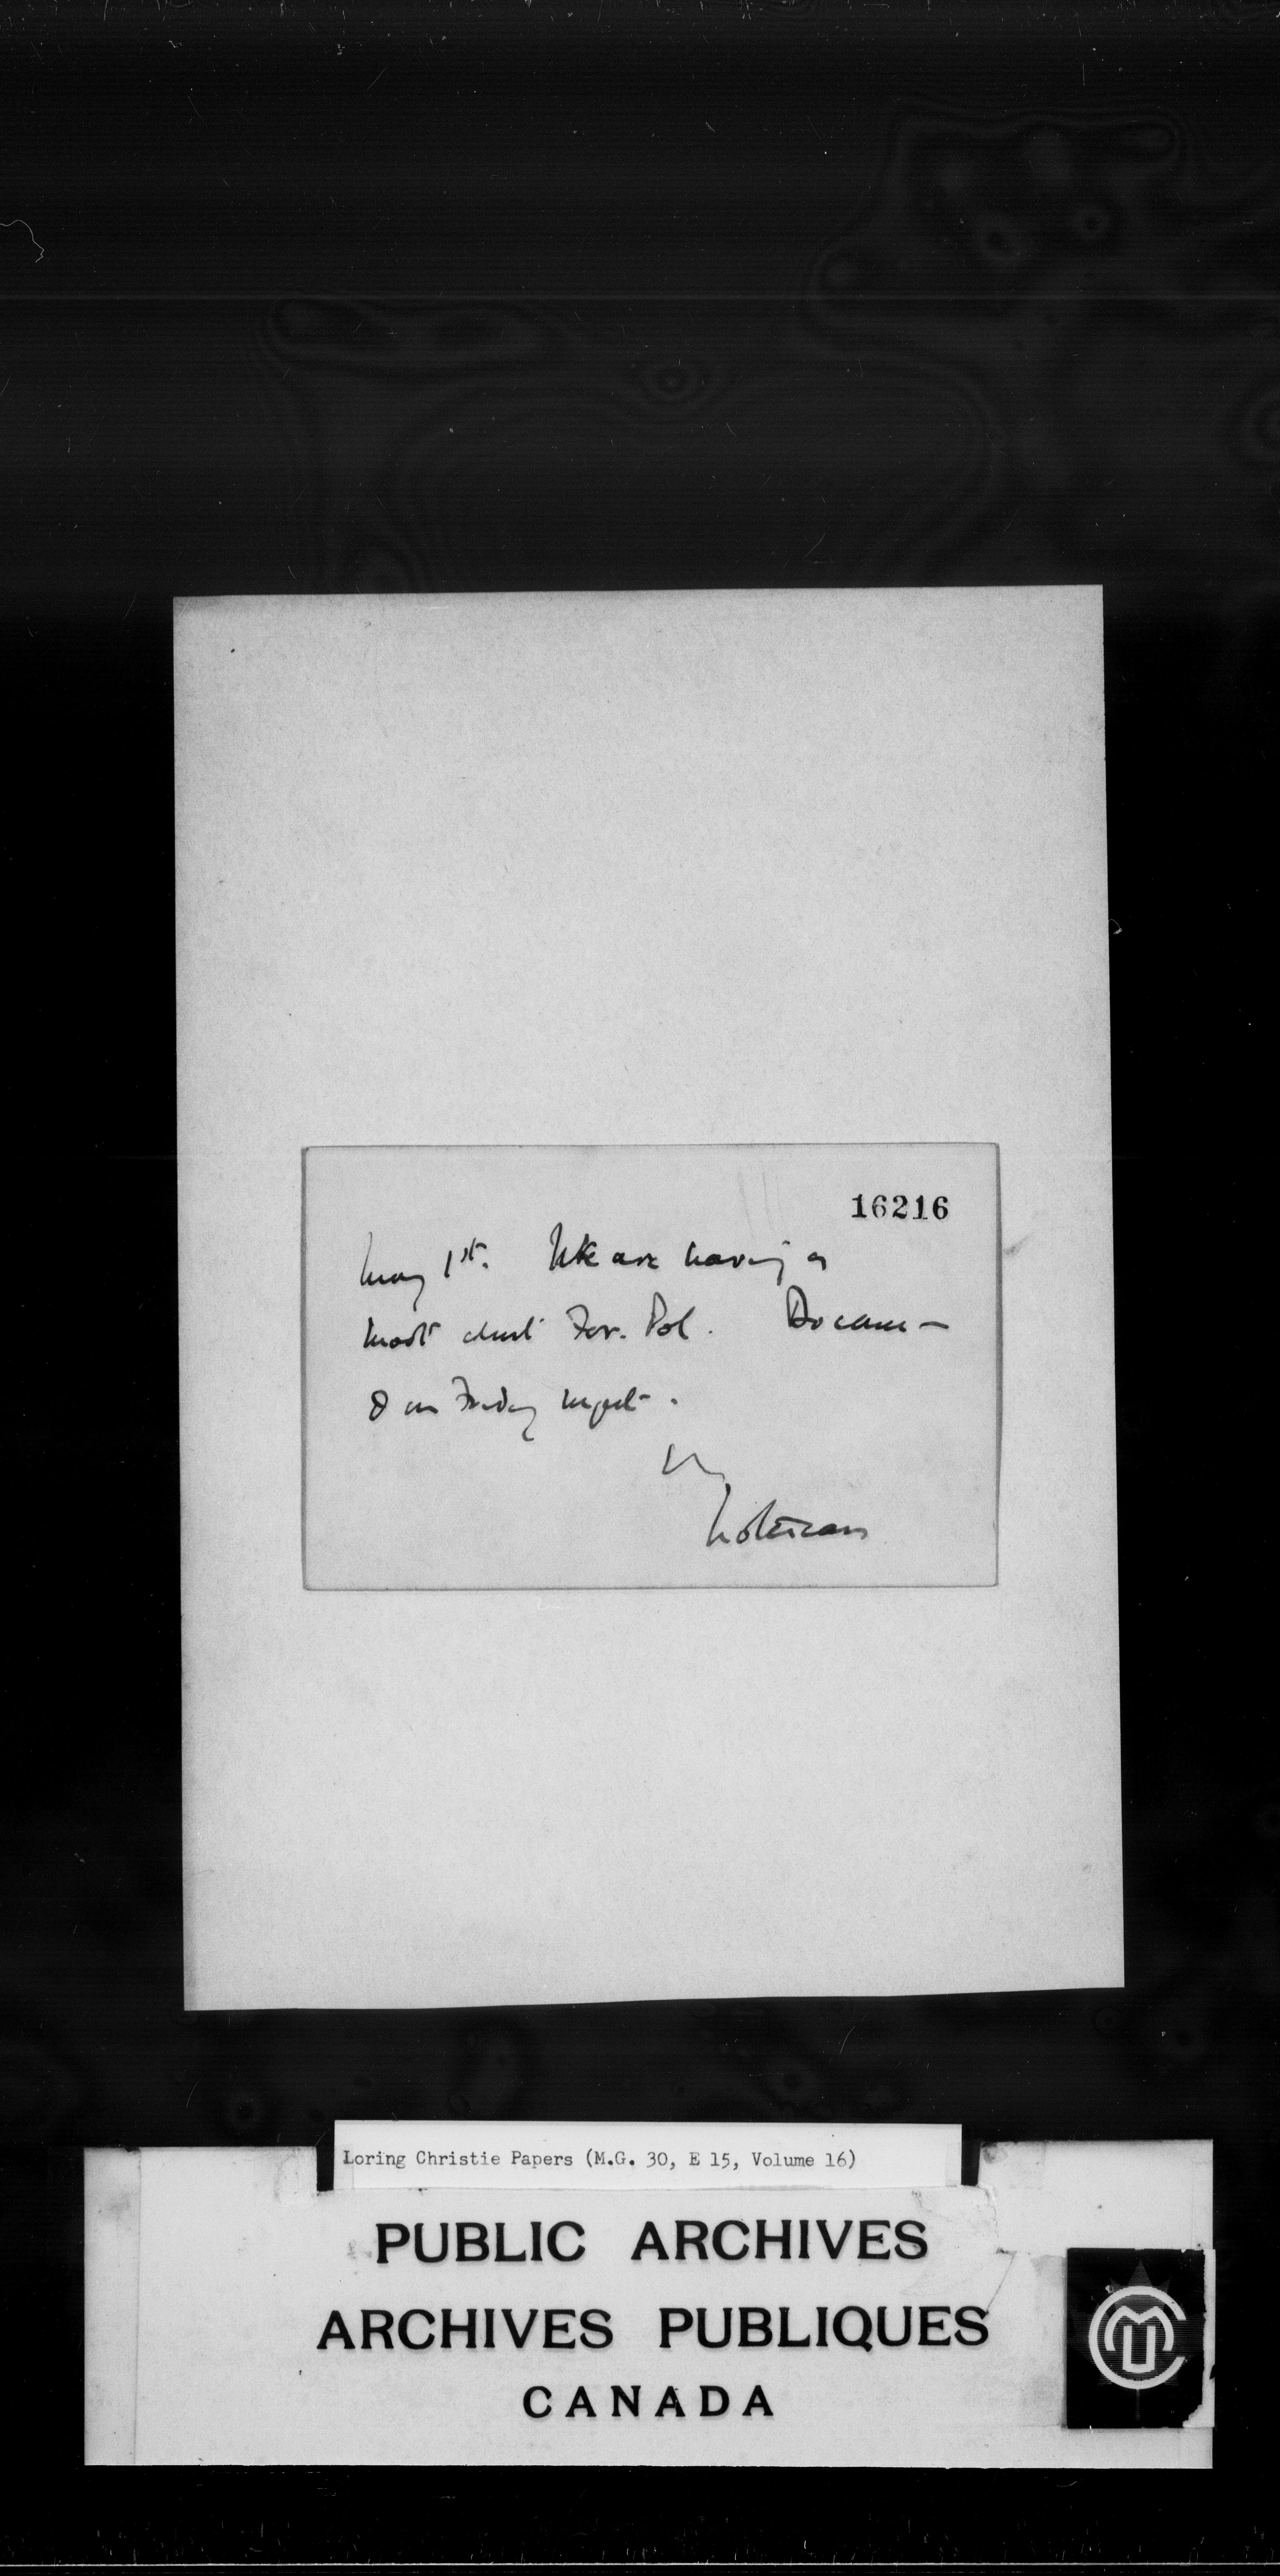 16216
May 1st. We are having a
moot about For. Pol. Do come —
8 on Friday night.
Lothian
Loring Christie Papers (M.G. 30, E 15, Volume 16)
PUBLIC ARCHIVES
ARCHIVES PUBLIQUES
CANADA